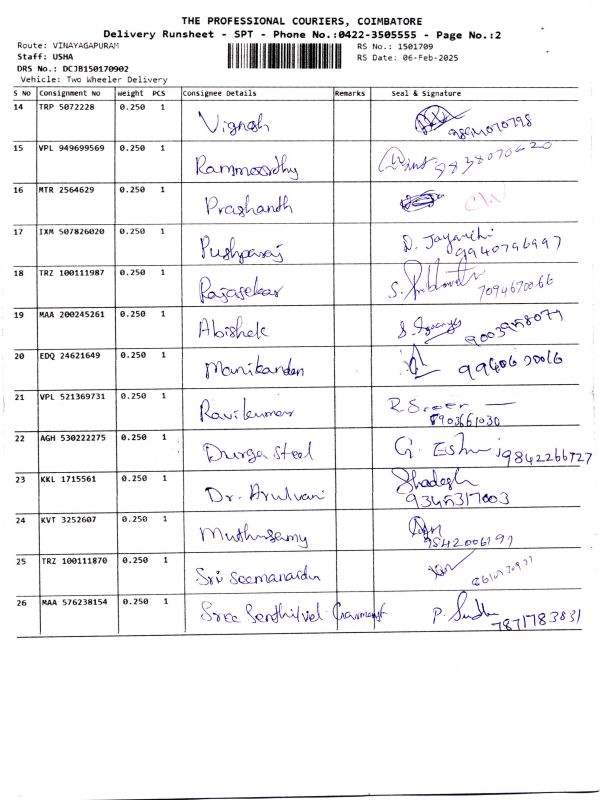 THE PROFESSIONAL COURIERS, COIMBATORE
Delivery Runsheet - SPT - Phone No.:0422-3505555 - Page No.:2
Route: VINAYAGAPURAM RS No.: 1501709
Staff: USHA RS Date: 06-Feb-2025
DRS No.: DCJB150170902
Vehicle: Two Wheeler Delivery
S No Consignment No Weight PCS Consignee Details Remarks Seal & Signature
14 TRP 5072228 0.250 1 Vignesh
15 VPL 949699569 0.250 1 Rammoorthy 9838070620
16 MTR 2564629 0.250 1 Prashanth
17 IXM 507826020 0.250 1 Pushparaj D. Jayanthi
9940796997
18 TRZ 100111987 0.250 1 Rajasekar S.
7094670066
19 MAA 200245261 0.250 1 Abishek S.
9003958079
20 EDQ 24621649 0.250 1 Manikandan 9940630016
21 VPL 521369731 0.250 1 Ravikumar R.
8903661030
22 AGH 530222275 0.250 1 Durga steel G.
9842266727
23 KKL 1715561 0.250 1 Dr. Arulvani
9345317003
24 KVT 3252607 0.250 1 Muthusamy
9542006197
25 TRZ 100111870 0.250 1 Sri
26 MAA 576238154 0.250 1 Sree Senthilvel Garment P. Sindhu
7871783831